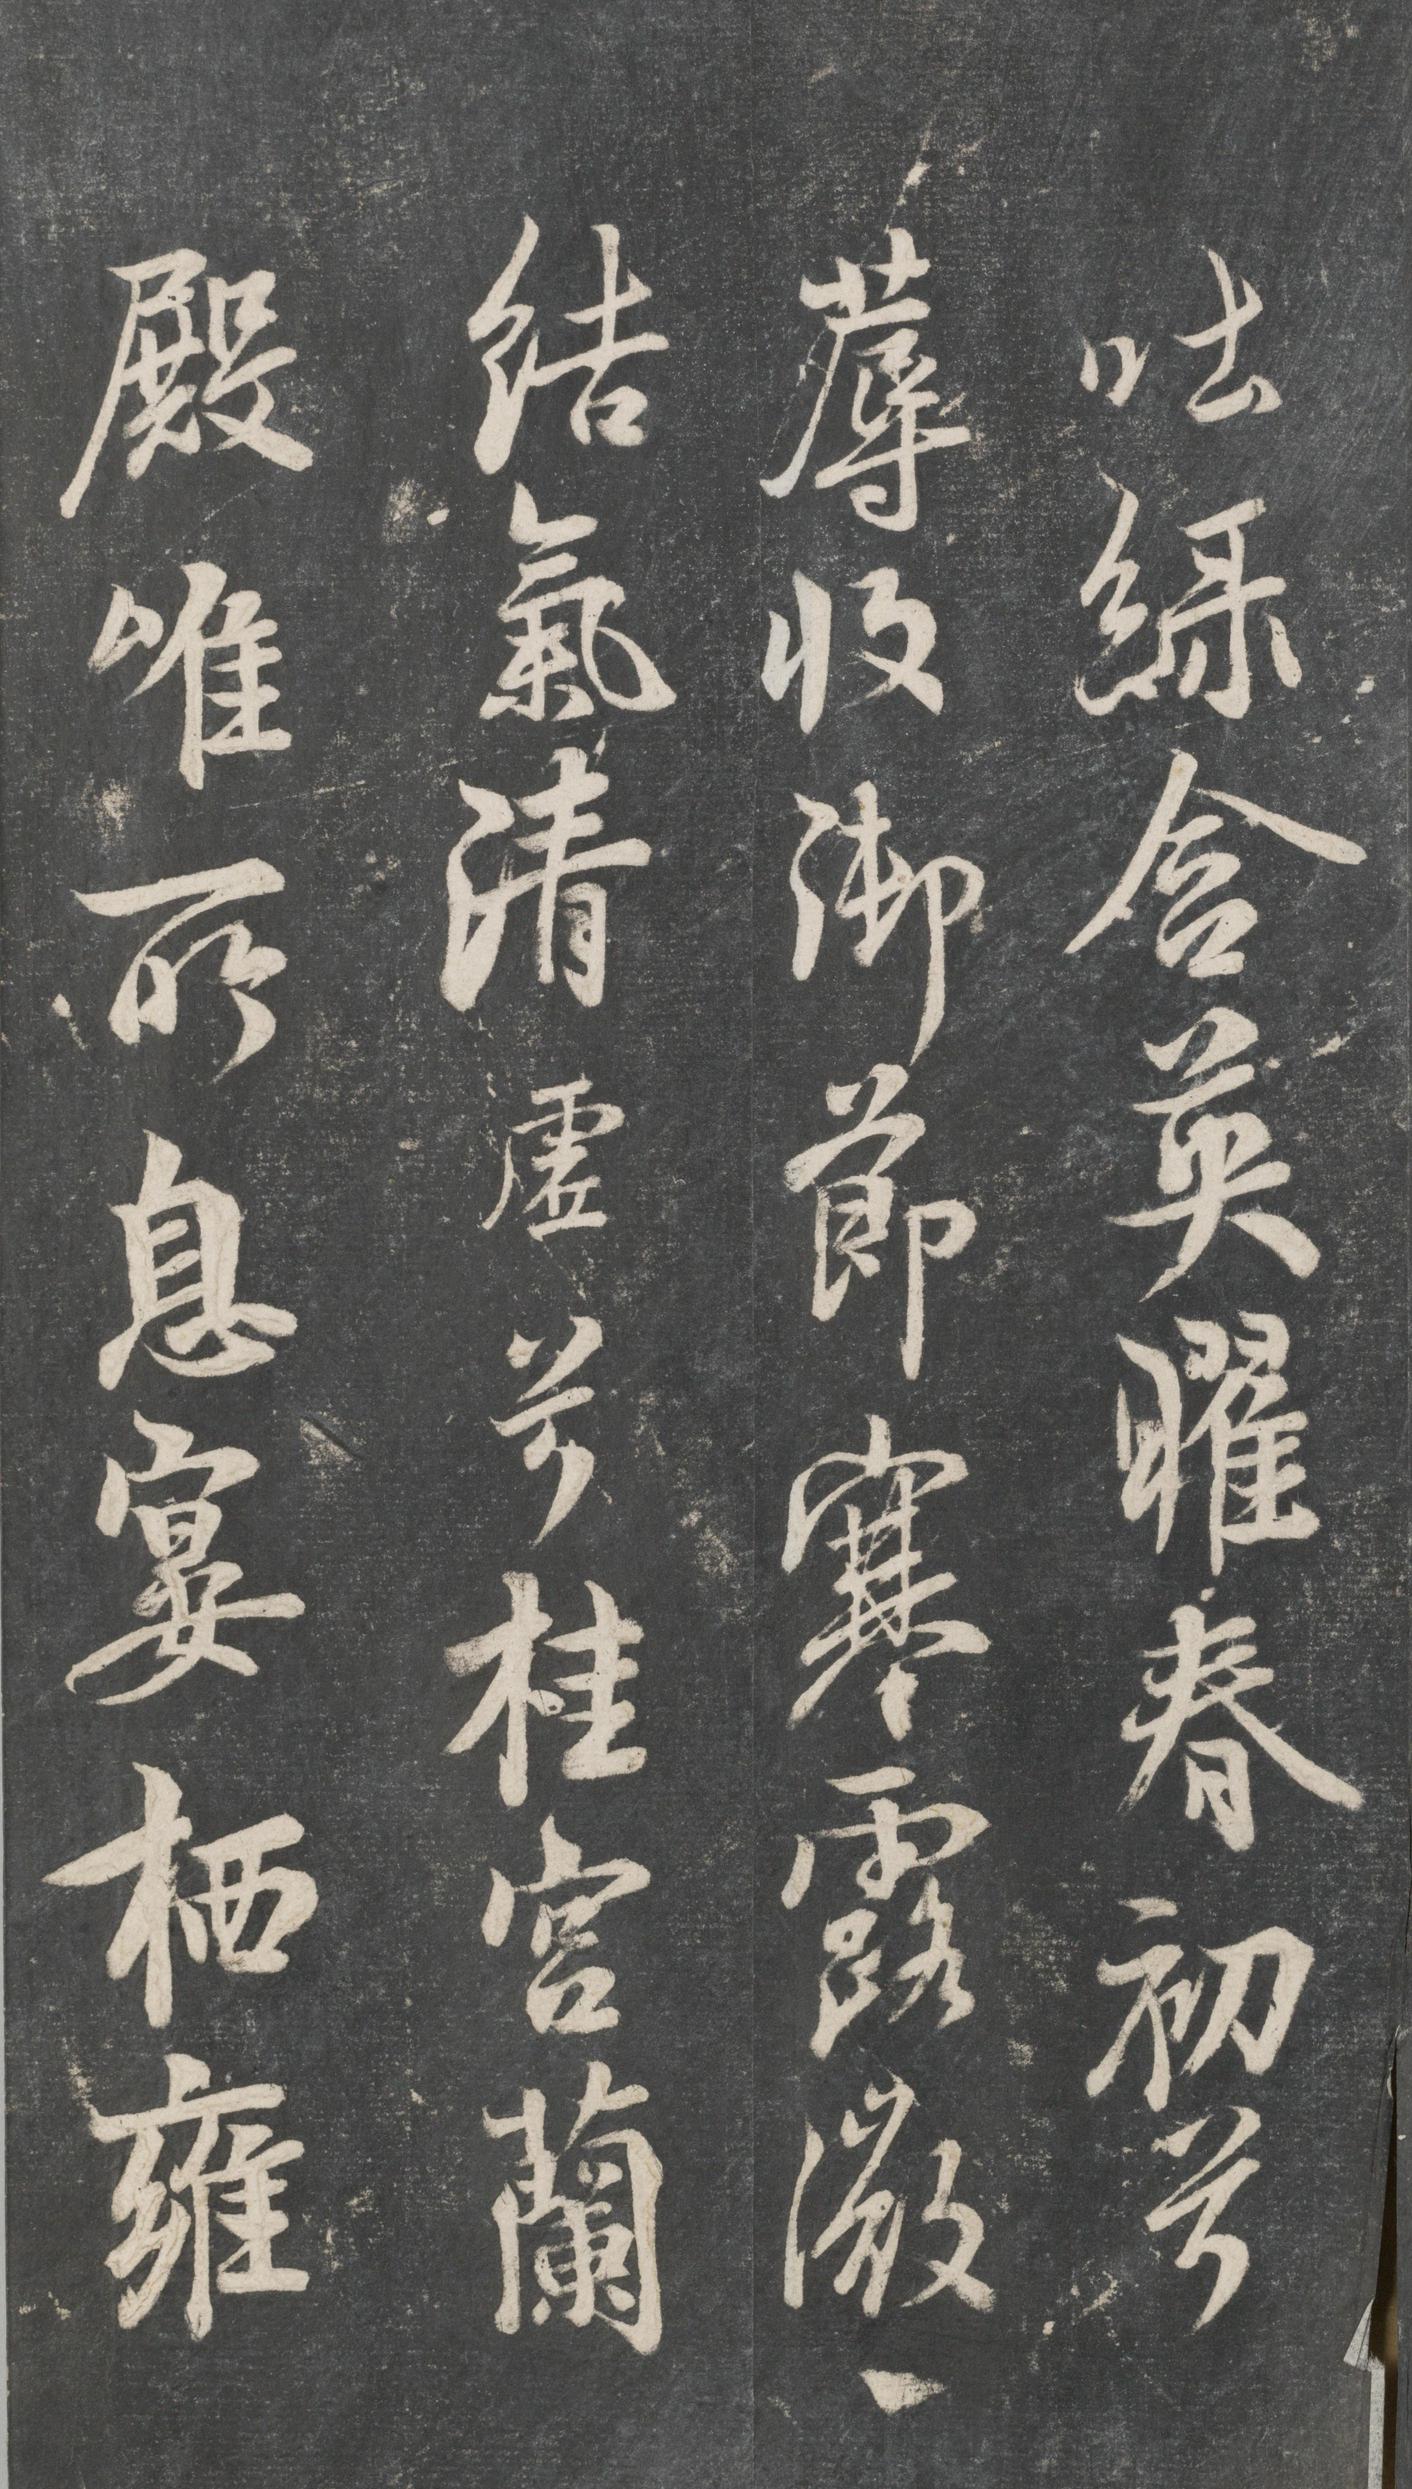 吐綠含英曜春初兮
蓐收御節寒露微
結氣清虛兮桂宮蘭
殿唯所息宴栖雍